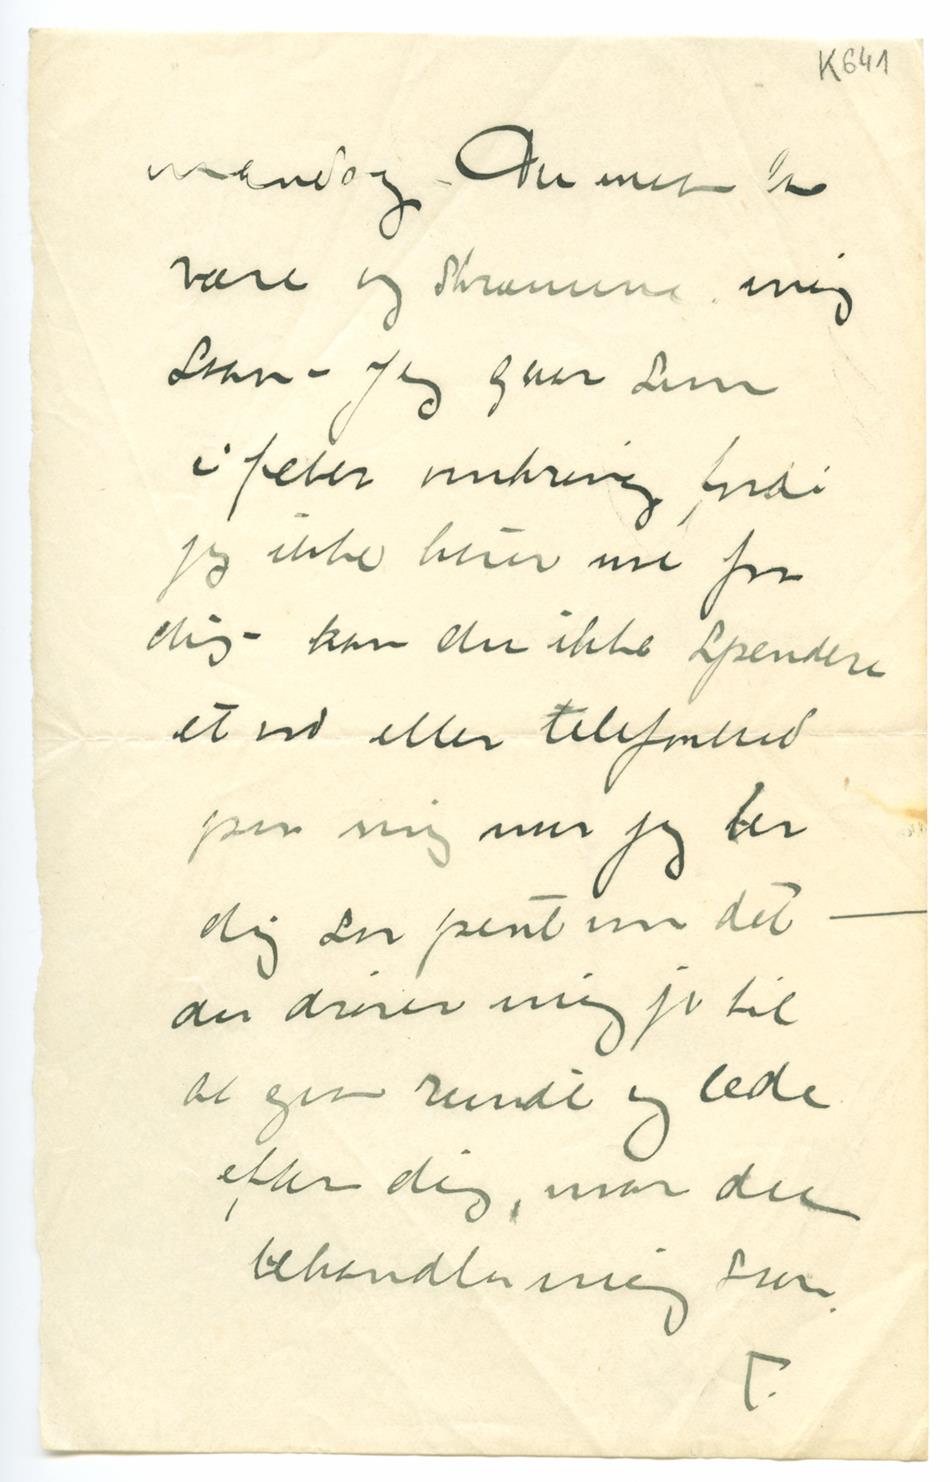 K641
mandag - Du maa
være og skramme mig
saan - Jeg gaar som
i feber omkring fordi
jeg ikke hører noe fra
dig - kan du ikke spendere
et ord eller telefonbud
paa mig naar jeg ber
dig saa pent om det —
du driver mig jo til
at gaa rundt og lede
efter dig, naar du
behandler mig saan.
T.